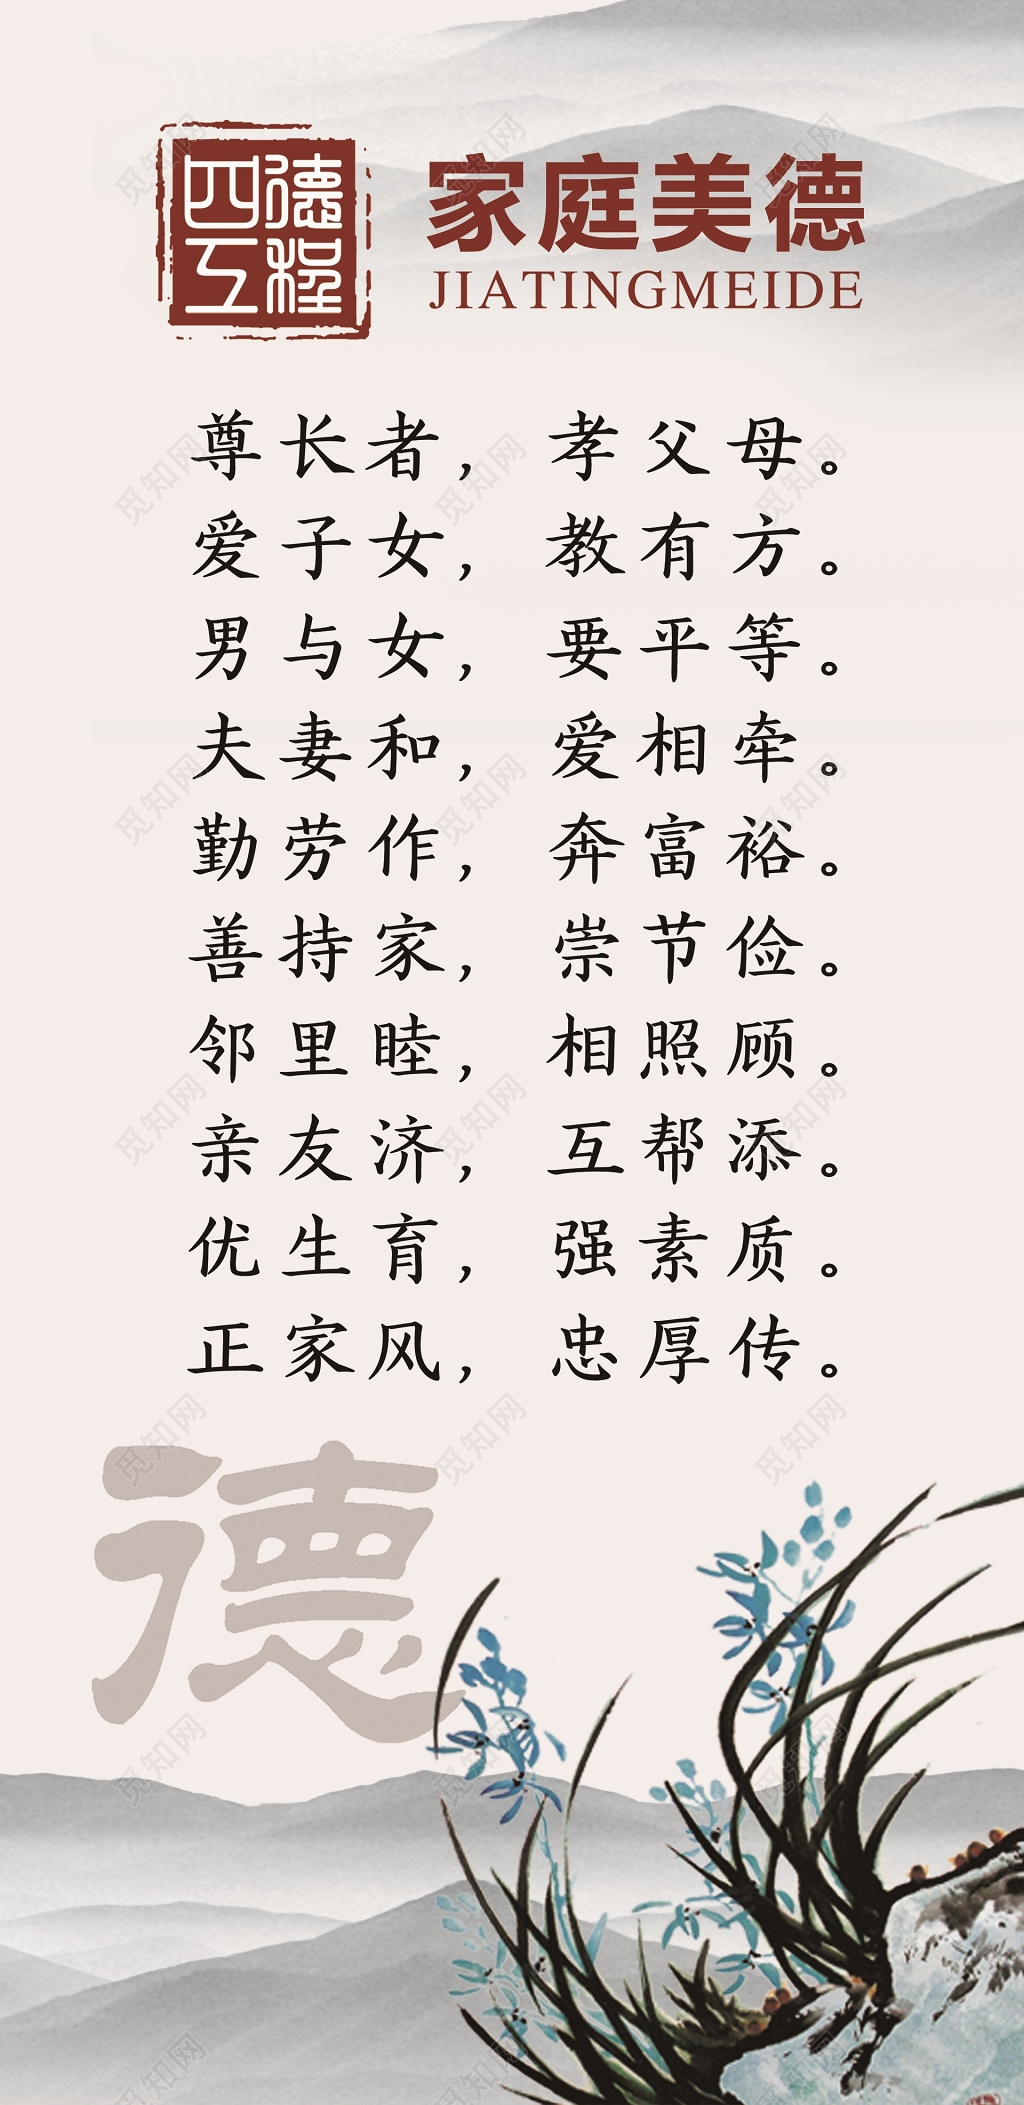 四德工程
家庭美德
JIATINGMEIDE
尊长者，孝父母。
爱子女，教有方。
男与女，要平等。
夫妻和，爱相牵。
勤劳作，奔富裕。
善持家，崇节俭。
邻里睦，相照顾。
亲友济，互帮添。
优生育，强素质。
正家风，忠厚传。
德
觅知网